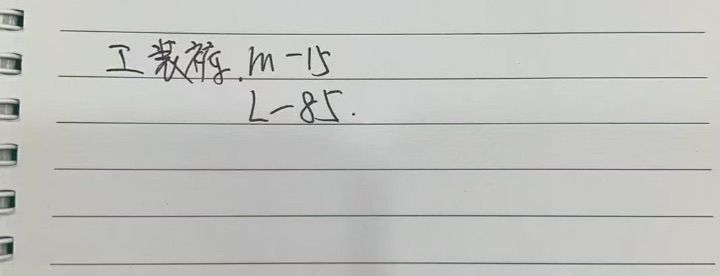 工装裤.m-15
L-85.